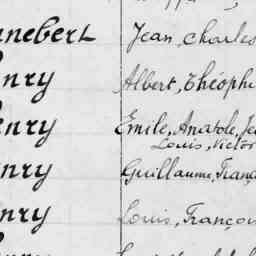 nnebert Jean, Charles
enry Albert, Théophi
enry Emile, Anatole, Je
Louis, Victor
enry Guillaume, Franç
enry Louis, Françoi